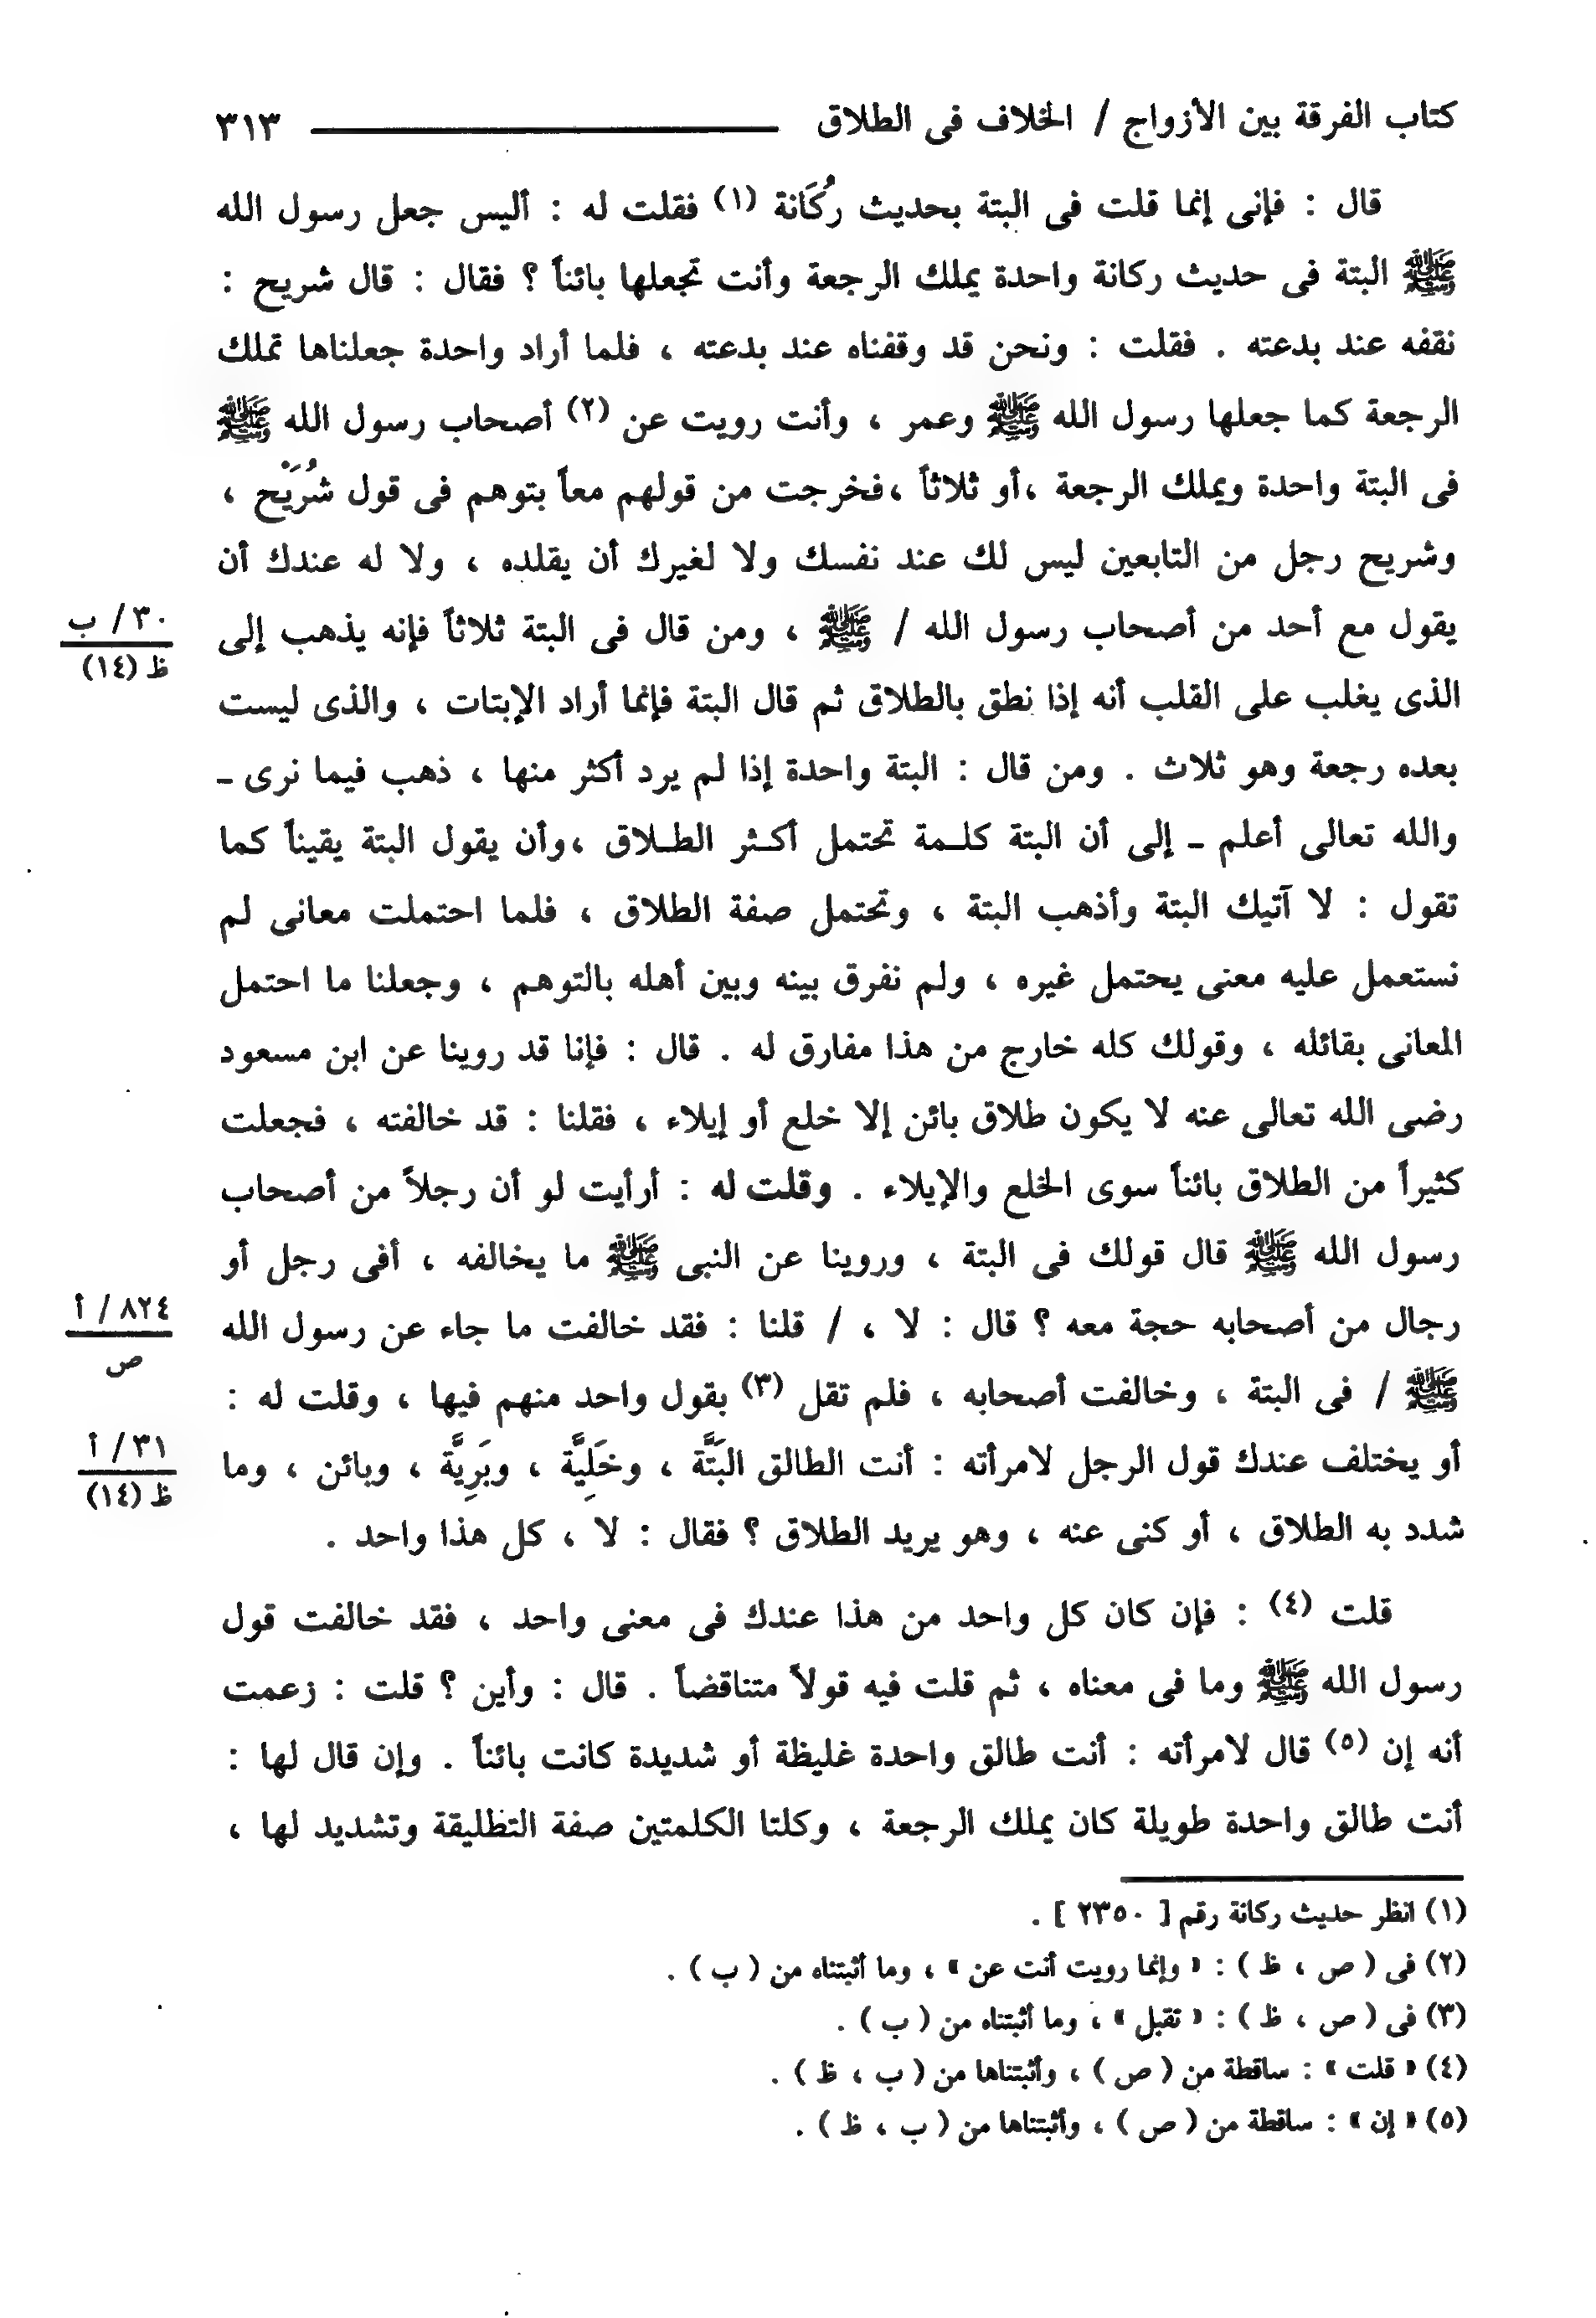 كتاب الفرقة بين الأزواج / الخلاف فى الطلاق ٣١٣
قال : فإنى إنما قلت فى البتة بحديث رُكَانة (١) فقلت له : أليس جعل رسول الله
ﷺ البتة فى حديث ركانة واحدة يملك الرجعة وأنت تجعلها بائناً ؟ فقال : قال شريح :
نقفه عند بدعته . فقلت : ونحن قد وقفناه عند بدعته ، فلما أراد واحدة جعلناها تملك
الرجعة كما جعلها رسول الله ﷺ وعمر ، وأنت رويت عن (٢) أصحاب رسول الله ﷺ
فى البتة واحدة ويملك الرجعة ،أو ثلاثاً ،فخرجت من قولهم معاً بتوهم فى قول شُرَيْح ،
وشريح رجل من التابعين ليس لك عند نفسك ولا لغيرك أن يقلده ، ولا له عندك أن
يقول مع أحد من أصحاب رسول الله / ﷺ ، ومن قال فى البتة ثلاثاً فإنه يذهب إلى
٣٠/ ب
ظ (١٤)
الذى يغلب على القلب أنه إذا نطق بالطلاق ثم قال البتة فإنما أراد الإبتات ، والذى ليست
بعده رجعة وهو ثلاث . ومن قال : البتة واحدة إذا لم يرد أكثر منها ، ذهب فيما نرى ـ
والله تعالى أعلم ـ إلى أن البتة كلـمة تحتمل أكـثر الطـلاق ،وأن يقول البتة يقيناً كما
تقول : لا آتيك البتة وأذهب البتة ، وتحتمل صفة الطلاق ، فلما احتملت معانى لم
نستعمل عليه معنى يحتمل غيره ، ولم نفرق بينه وبين أهله بالتوهم ، وجعلنا ما احتمل
المعانى بقائله ، وقولك كله خارج من هذا مفارق له . قال : فإنا قد روينا عن ابن مسعود
رضى الله تعالى عنه لا يكون طلاق بائن إلا خلع أو إيلاء ، فقلنا : قد خالفته ، فجعلت
كثيراً من الطلاق بائناً سوى الخلع والإيلاء . وقلت له : أرأيت لو أن رجلاً من أصحاب
رسول الله ﷺ قال قولك فى البتة ، وروينا عن النبى ﷺ ما يخالفه ، أفى رجل أو
رجال من أصحابه حجة معه ؟ قال : لا ، / قلنا : فقد خالفت ما جاء عن رسول الله
٨٢٤/ أ
ص
ﷺ / فى البتة ، وخالفت أصحابه ، فلم تقل (٣) بقول واحد منهم فيها ، وقلت له :
٣١/ أ
ظ (١٤)
أو يختلف عندك قول الرجل لامرأته : أنت الطالق البَتَّة ، وخَلِيَّة ، وبَرِيَّة ، وبائن ، وما
شدد به الطلاق ، أو كنى عنه ، وهو يريد الطلاق ؟ فقال : لا ، كل هذا واحد .
قلت (٤) : فإن كان كل واحد من هذا عندك فى معنى واحد ، فقد خالفت قول
رسول الله ﷺ وما فى معناه ، ثم قلت فيه قولاً متناقضاً . قال : وأين ؟ قلت : زعمت
أنه إن (٥) قال لامرأته : أنت طالق واحدة غليظة أو شديدة كانت بائناً . وإن قال لها :
أنت طالق واحدة طويلة كان يملك الرجعة ، وكلتا الكلمتين صفة التظليقة وتشديد لها ،
(١) انظر حديث ركانة رقم [ ٢٣٥٠ ] .
(٢) فى ( ص ، ظ ) : « وإنما رويت أنت عن » ، وما أثبتناه من ( ب ) .
(٣) فى ( ص ، ظ ) : « تقبل » ، وما أثبتناه من ( ب ) .
(٤) « قلت » : ساقطة من ( ص ) ، وأثبتناها من ( ب ، ظ ) .
(٥) « إن » : ساقطة من ( ص ) ، وأثبتناها من ( ب ، ظ ) .